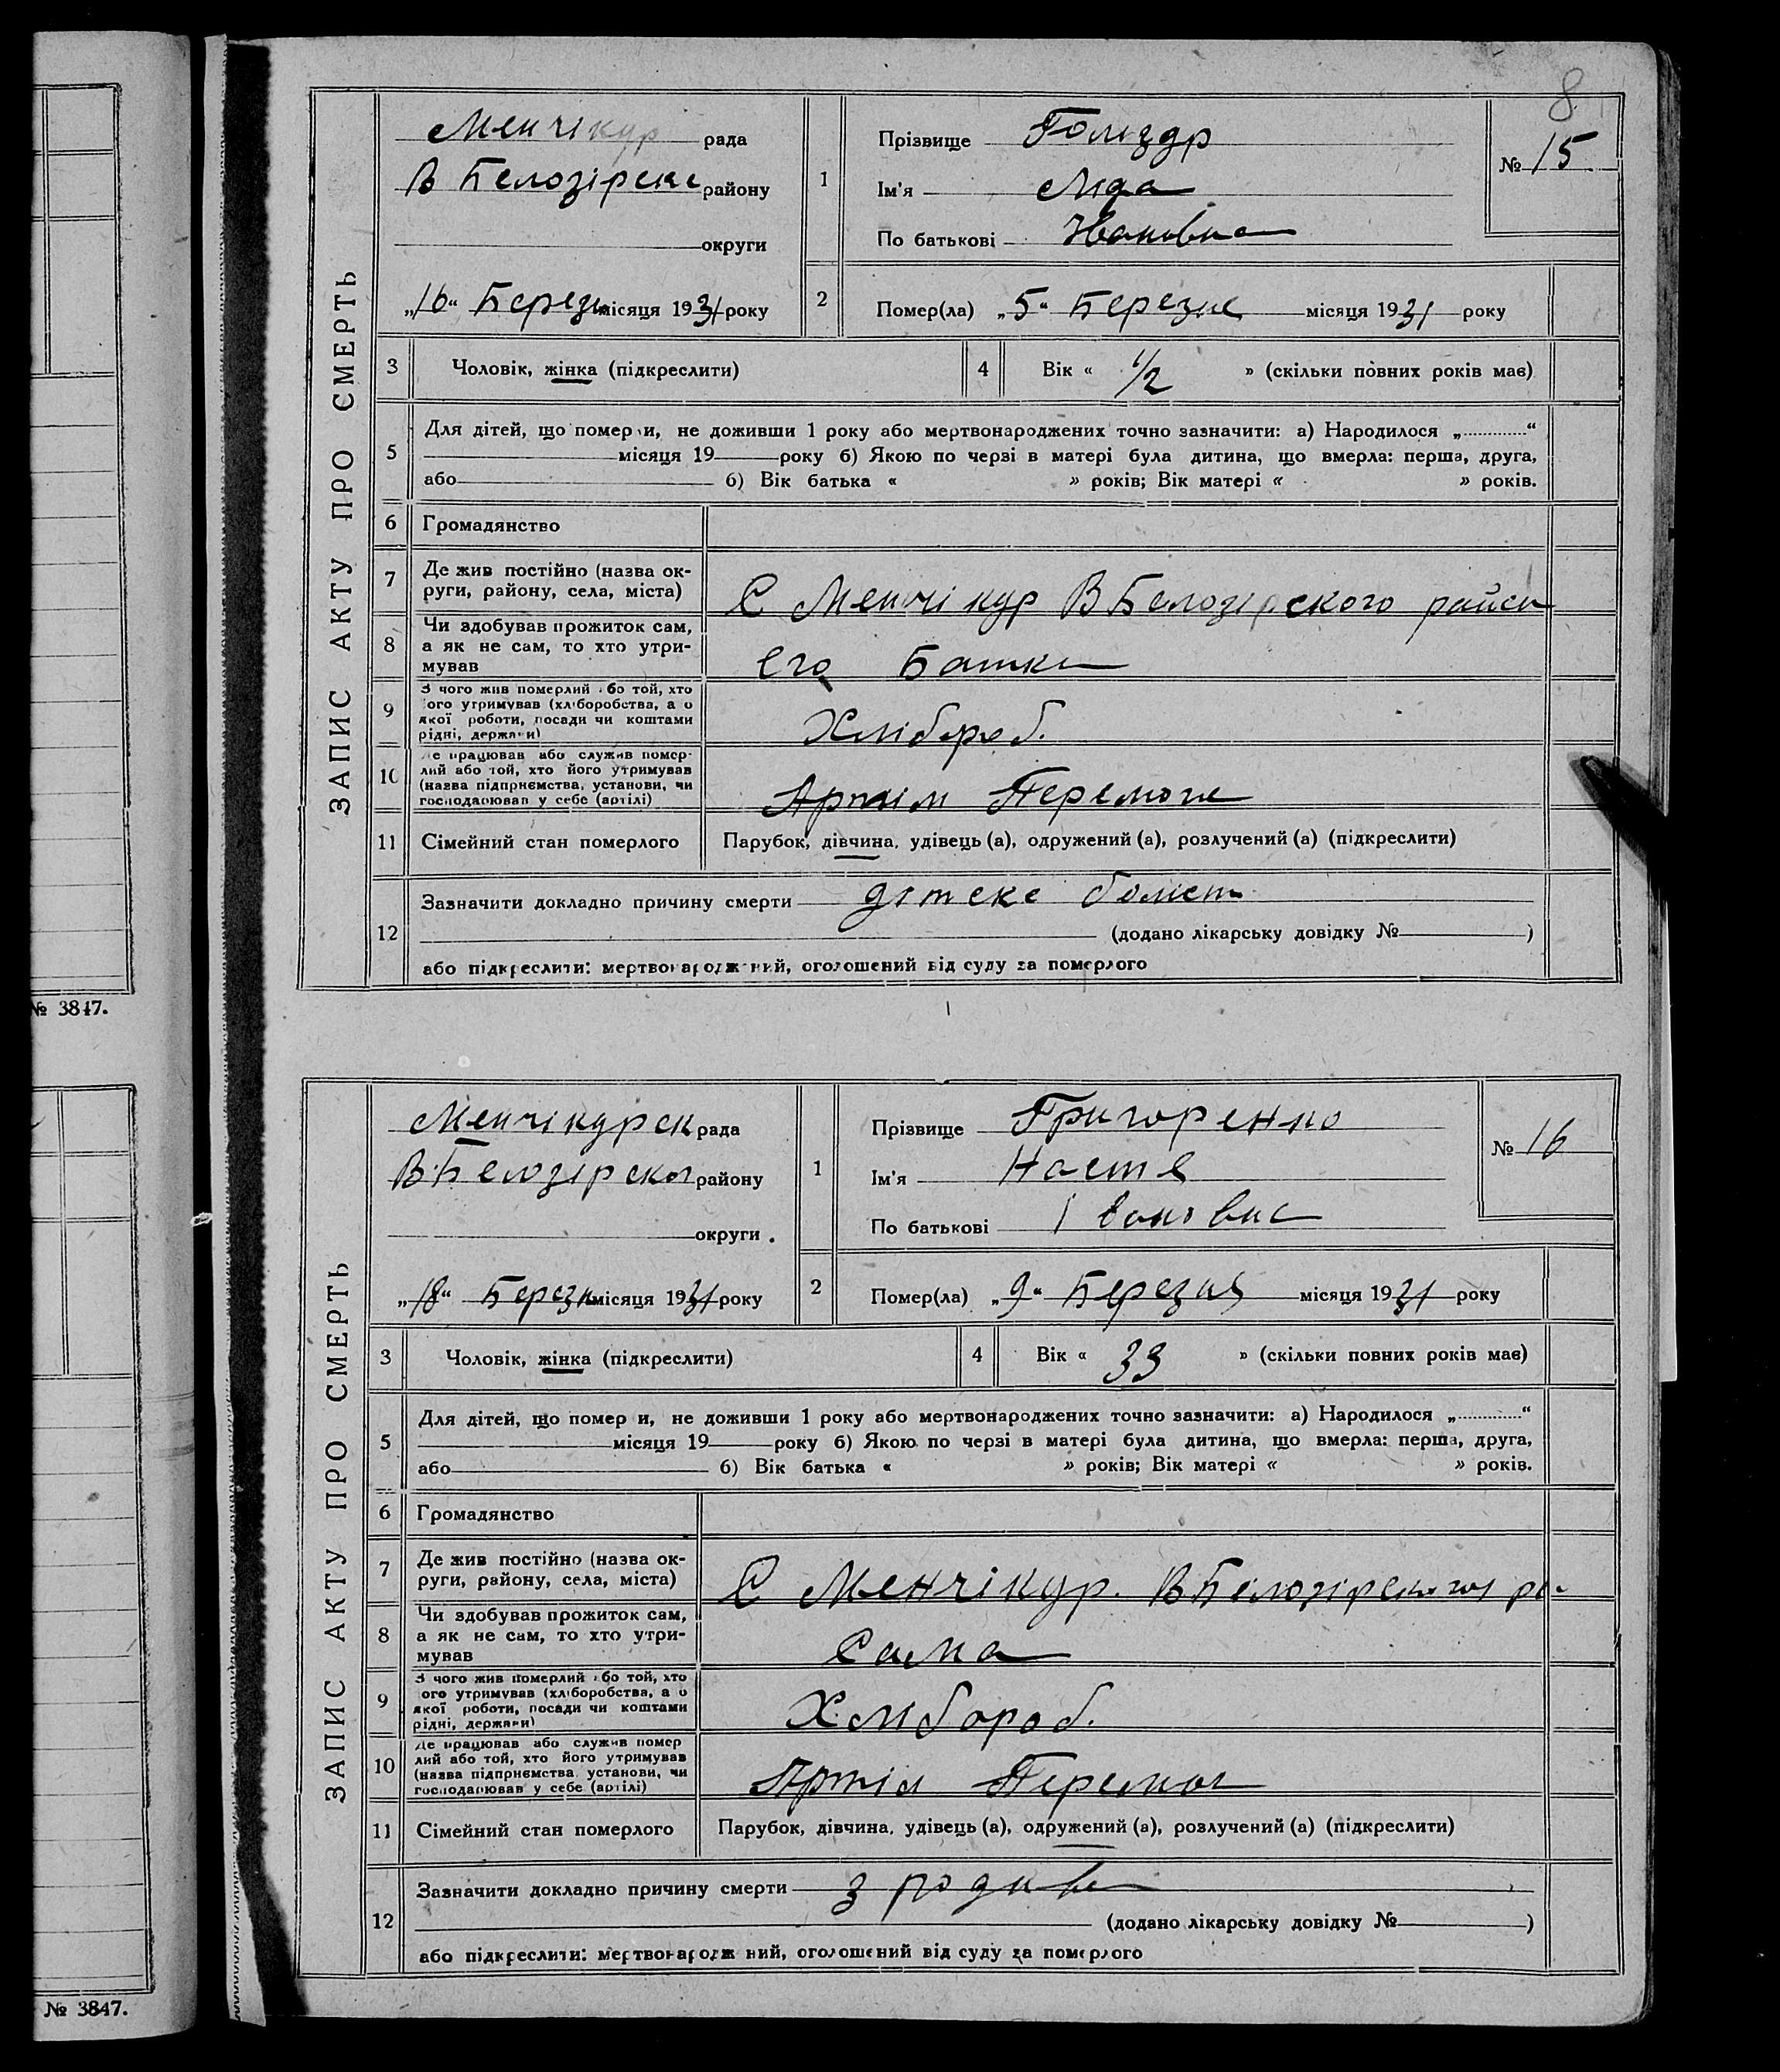 8
ЗАПИС АКТУ ПРО СМЕРТЬ
Менчікур рада
В Белозірске району
округи
№ 15
1
Прізвище Голіздр
Ім'я Ліда
По батькові Ивановна
„16“ Березн місяця 1931 року
2
Помер(ла) „5“ Березне місяця 1931 року
3 Чоловік, жінка (підкреслити)
4 Вік « 1/2 » (скільки повних років має)
5 Для дітей, що померли, не доживши 1 року або мертвонароджених точно зазначити: а) Народилося „............“
місяця 19 року б) Якою по черзі в матері була дитина, що вмерла: перша, друга,
або б) Вік батька « » років; Вік матері « » років.
6 Громадянство
7 Де жив постійно (назва ок-
руги, району, села, міста)
С Менчікур В Белозірского район
8 Чи здобував прожиток сам,
а як не сам, то хто утри-
мував
его Батки
9 З чого жив померлий або той, хто
його утримував (хліборобства, а о
якої роботи, посади чи коштами
рідні, держави)
Хлібороб.
10 Де працював або служив помер-
лий або той, хто його утримував
(назва підприємства, установи, чи
господарював у себе (артілі)
Артіл Перемоге
11 Сімейний стан померлого
Парубок, дівчина, удівець (а), одружений (а), розлучений (а) (підкреслити)
12 Зазначити докладно причину смерти дітске боліст
(додано лікарську довідку № )
або підкреслити: мертвонароджений, оголошений від суду за померлого
ЗАПИС АКТУ ПРО СМЕРТЬ
Менчікурск рада
В.Белозірског району
округи .
№ 16
1
Прізвище Григоренко
Ім'я Настя
По батькові Івановна
„18“ Березн місяця 1931 року
2
Помер(ла) „9“ Березня місяця 1931 року
3 Чоловік, жінка (підкреслити)
4 Вік « 33 » (скільки повних років має)
5 Для дітей, що померли, не доживши 1 року або мертвонароджених точно зазначити: а) Народилося „............“
місяця 19 року б) Якою по черзі в матері була дитина, що вмерла: перша, друга,
або б) Вік батька « » років; Вік матері « » років.
6 Громадянство
7 Де жив постійно (назва ок-
руги, району, села, міста)
С Менчікур. В Белозірског ра
8 Чи здобував прожиток сам,
а як не сам, то хто утри-
мував
Сама
9 З чого жив померлий або той, хто
його утримував (хліборобства, а о
якої роботи, посади чи коштами
рідні, держави)
Хлібороб.
10 Де працював або служив помер
лий або той, хто його утримував
(назва підприємства, установи, чи
господарював у себе (артілі)
Артіл Перемог
11 Сімейний стан померлого
Парубок, дівчина, удівець (а), одружений (а), розлучений (а) (підкреслити)
12 Зазначити докладно причину смерти з родив
(додано лікарську довідку № )
або підкреслити: мертвонароджений, оголошений від суду за померлого
№ 3847.
№ 3847.